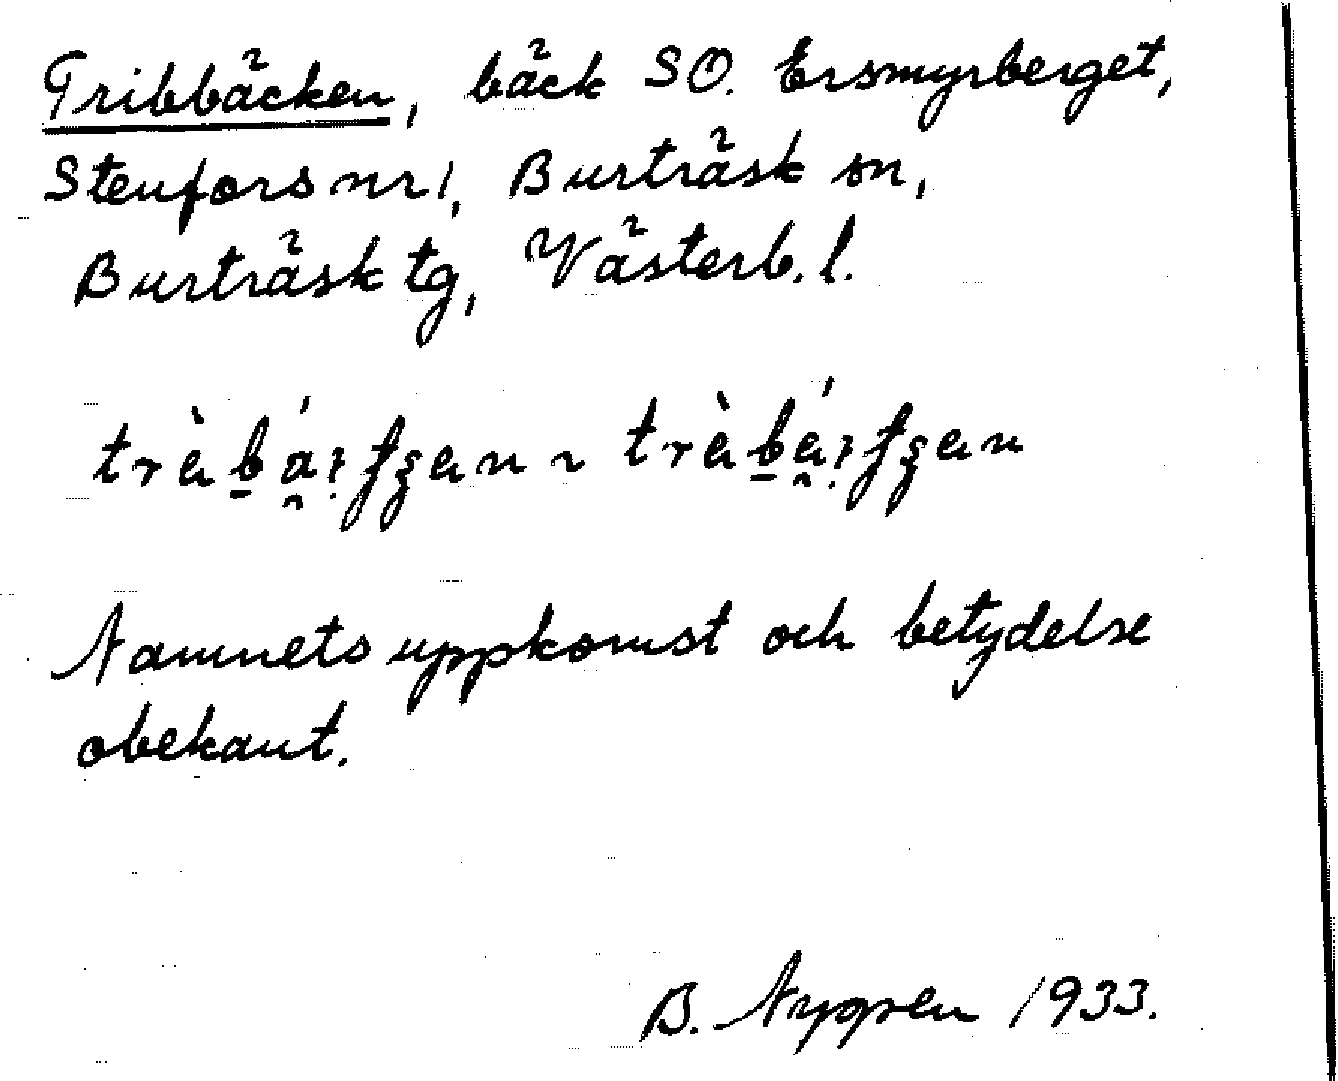 Tribbäcken, bäck SO. Ersmyrberget,
Stenfors nr 1, Burträsk sn,
Burträsk tg, Västerb. l.
Namnets uppkomst och betydelse
obekant.
B. Nygren 1933.